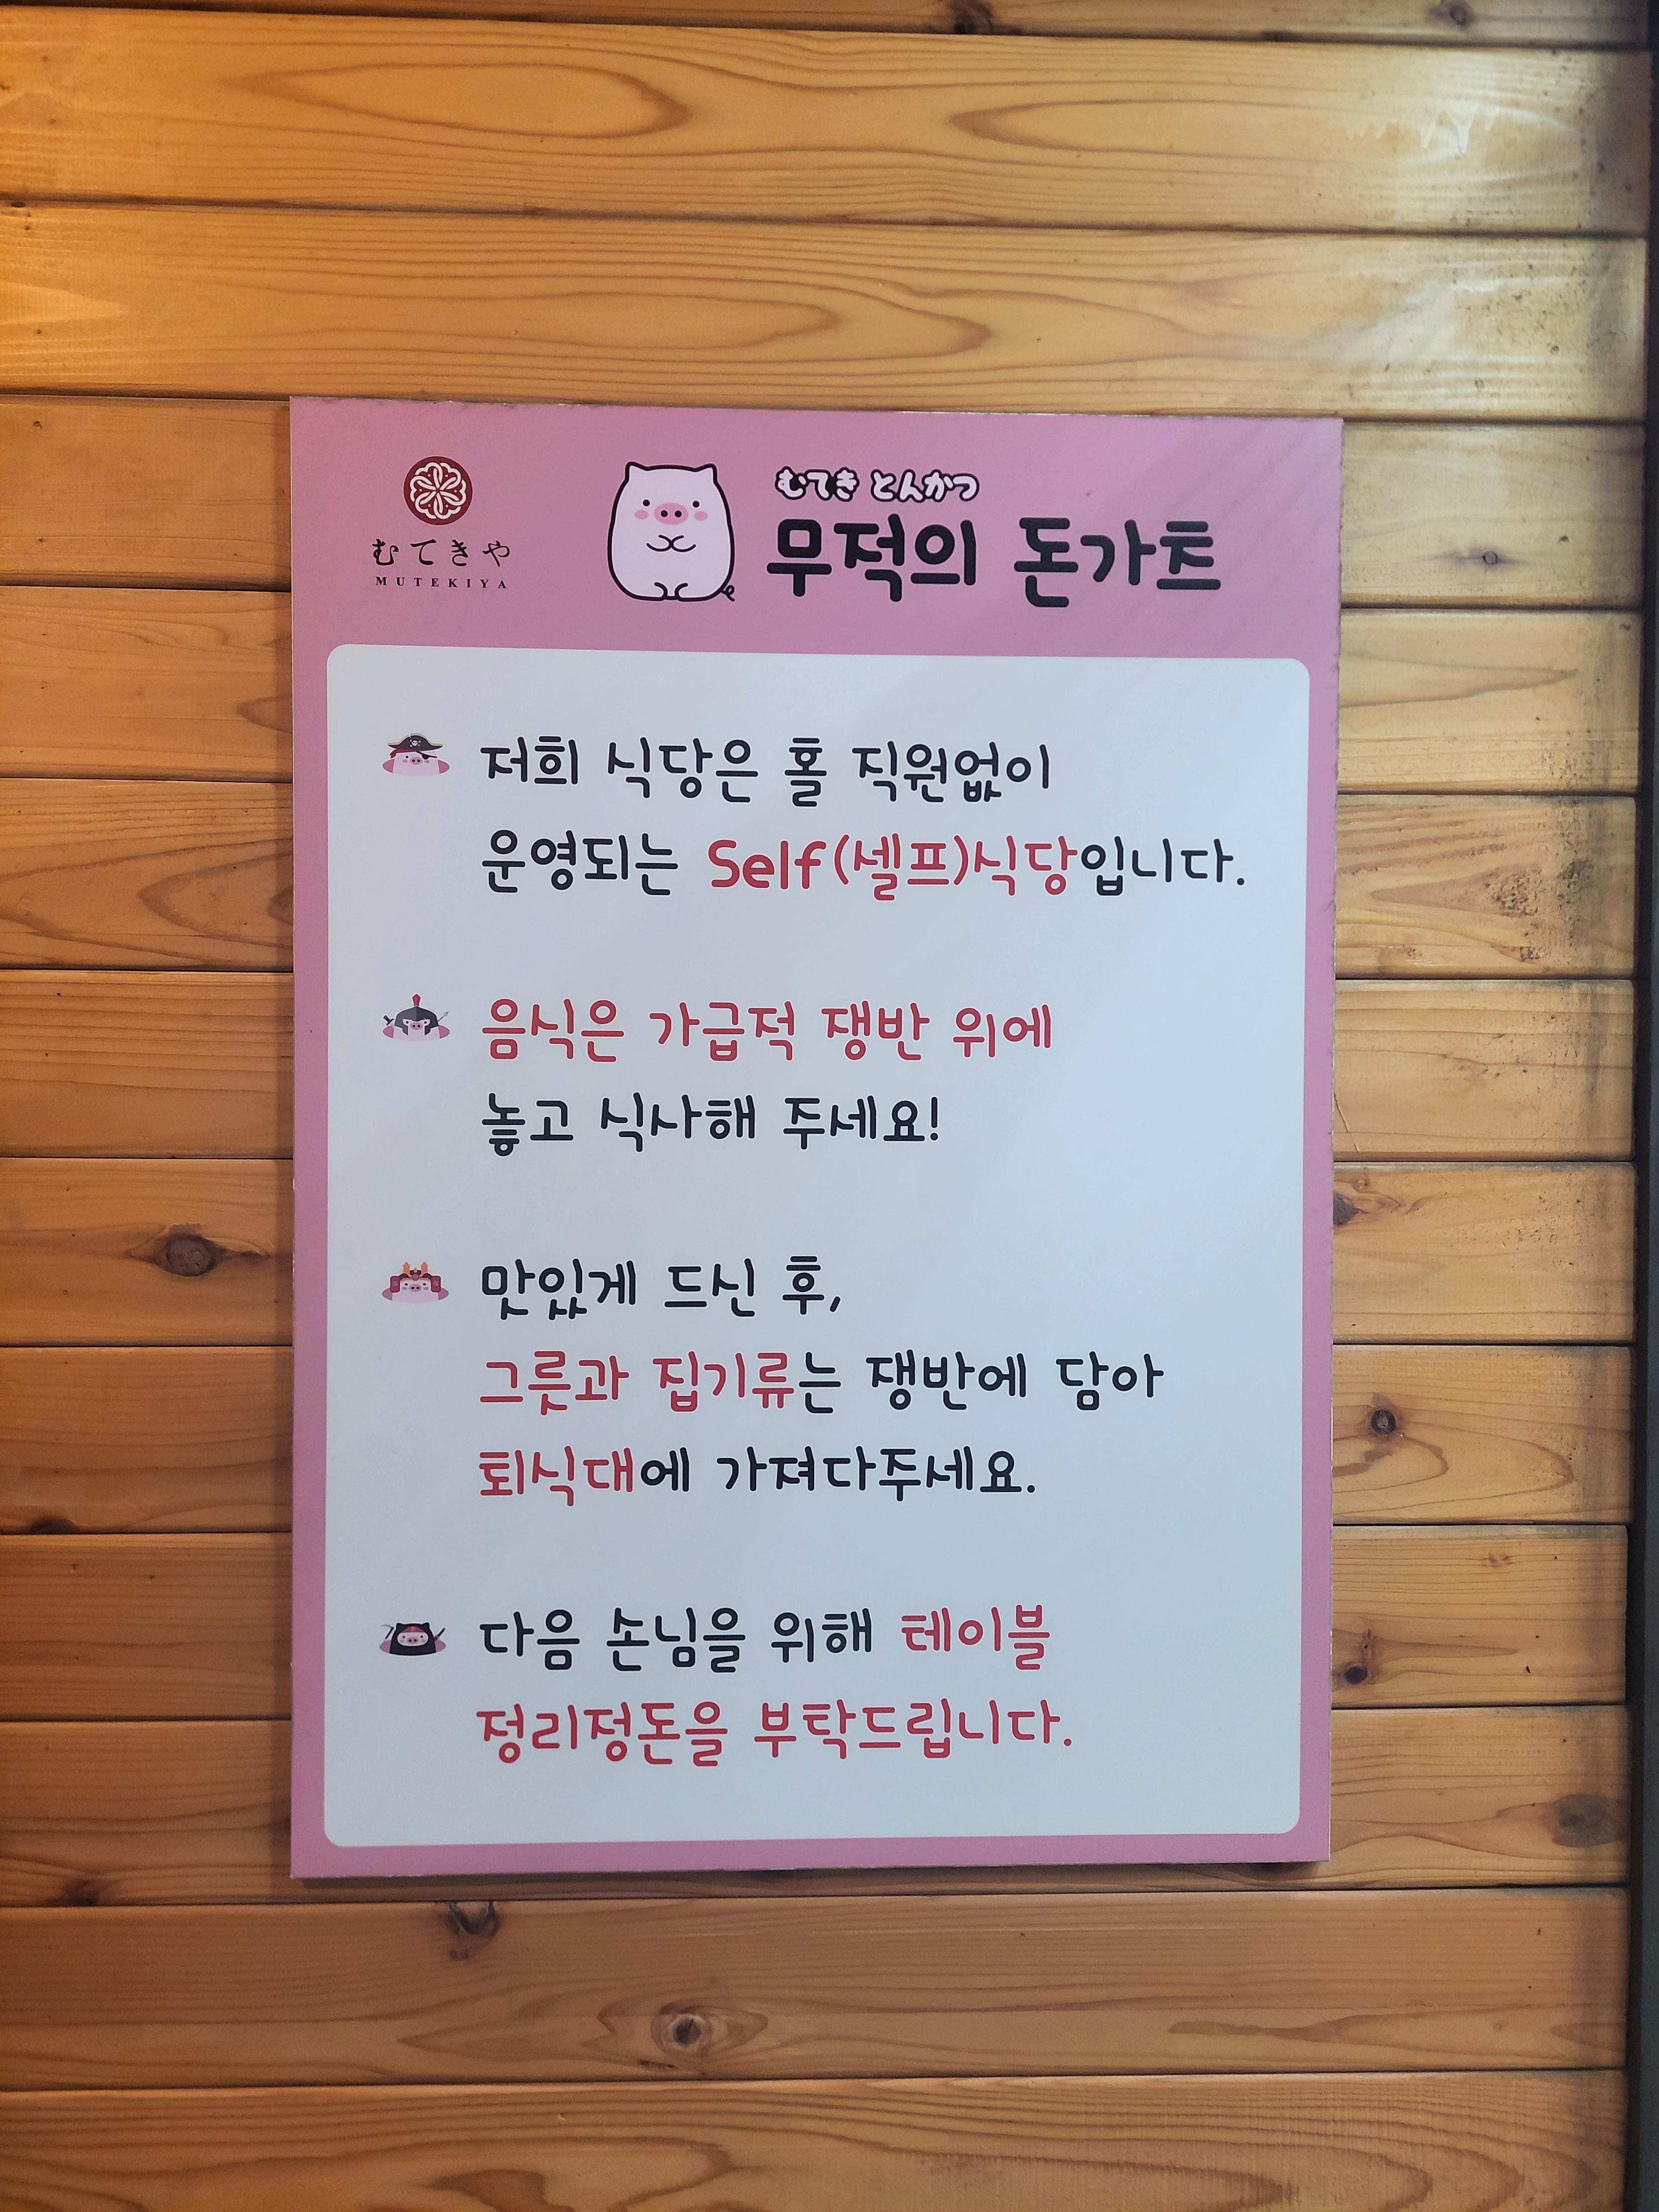 むてきや
MUTEKIYA
むてき とんかつ
무적의 돈가츠
저희 식당은 홀 직원없이
운영되는 Self(셀프)식당입니다.
음식은 가급적 쟁반 위에
놓고 식사해 주세요!
맛있게 드신 후,
그릇과 집기류는 쟁반에 담아
퇴식대에 가져다주세요.
다음 손님을 위해 테이블
정리정돈을 부탁드립니다.